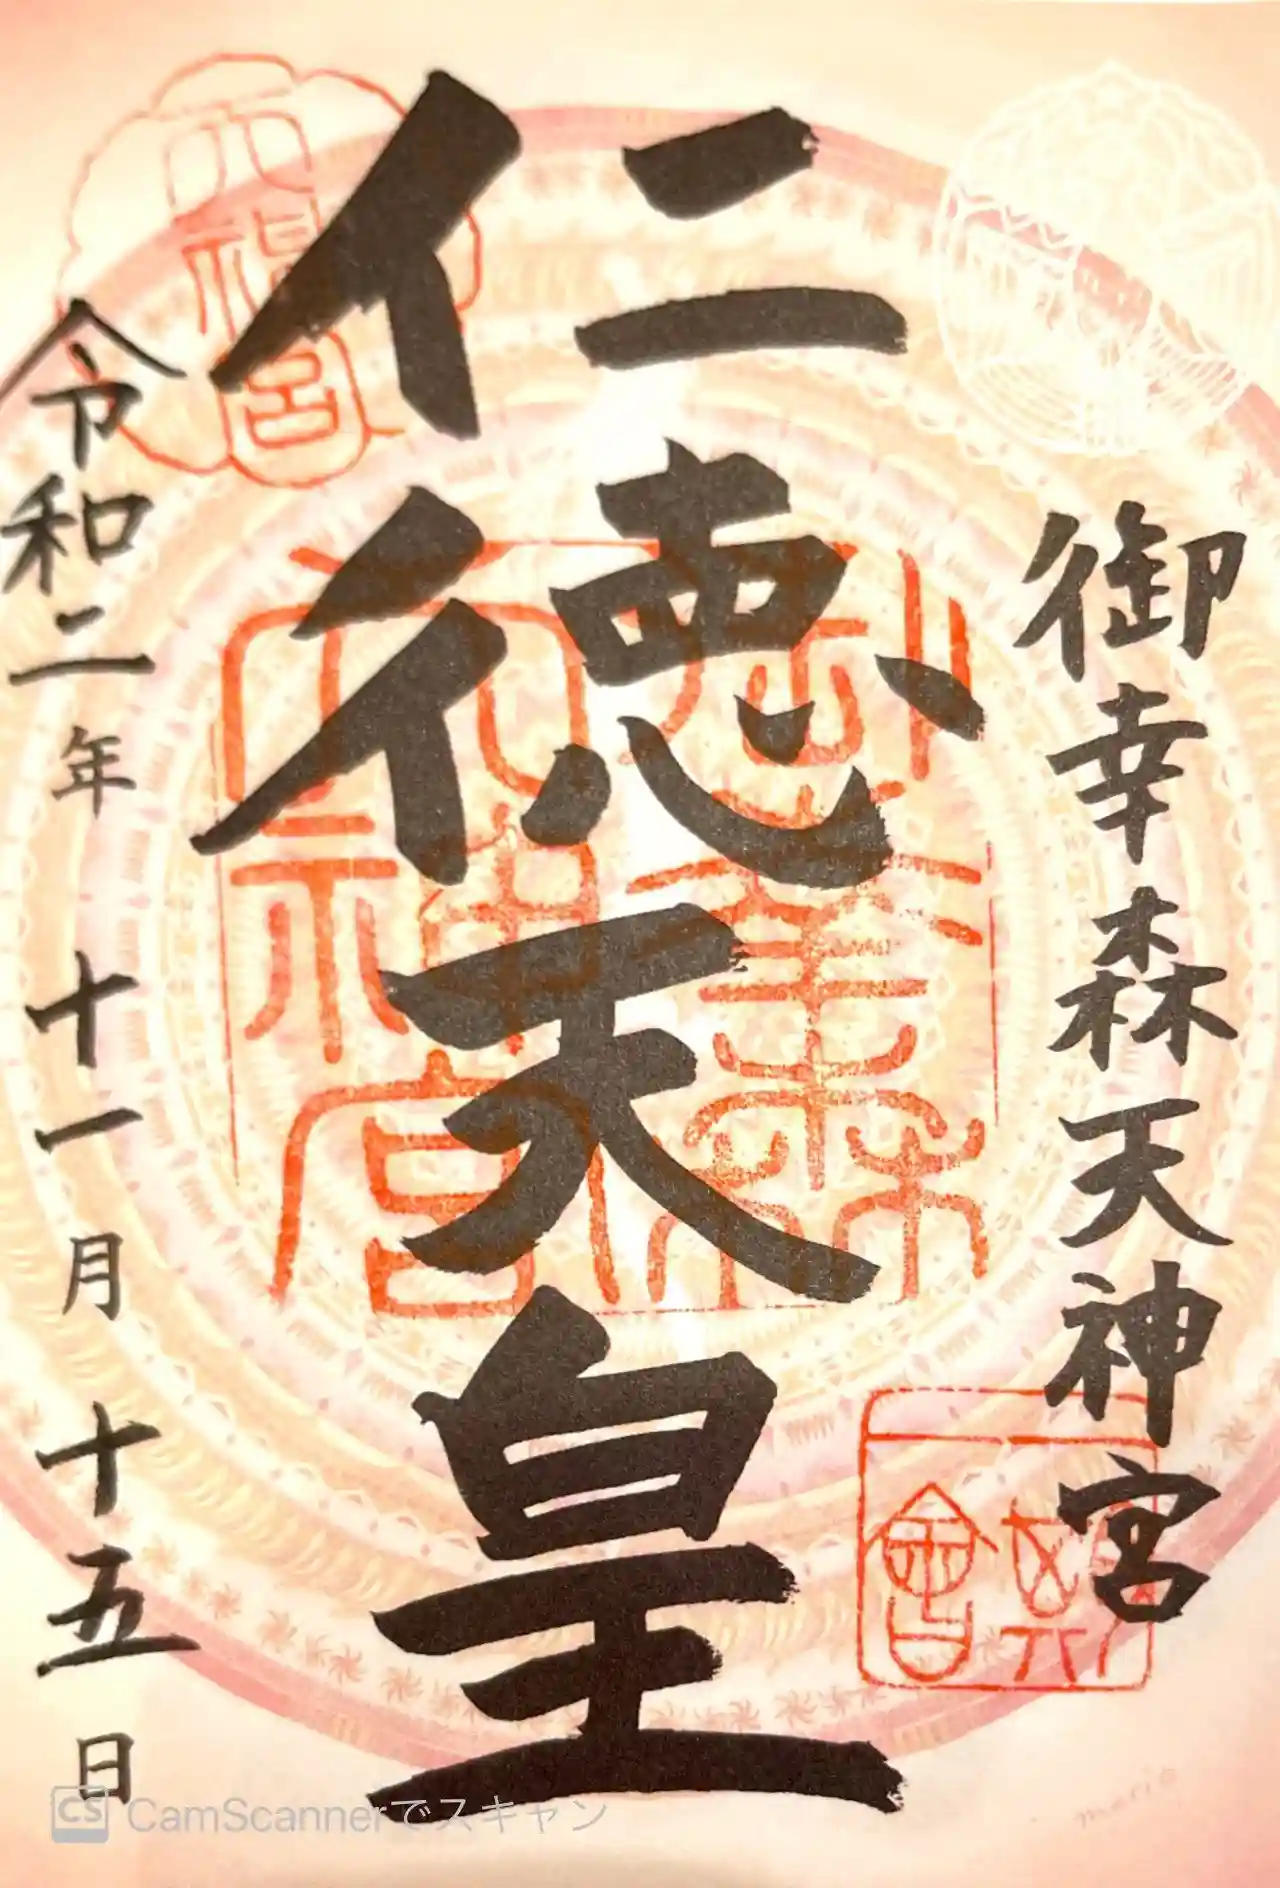 御幸森天神宮
仁徳天皇
令和二年十一月十五日
天神宮
CS CamScannerでスキャン
mario